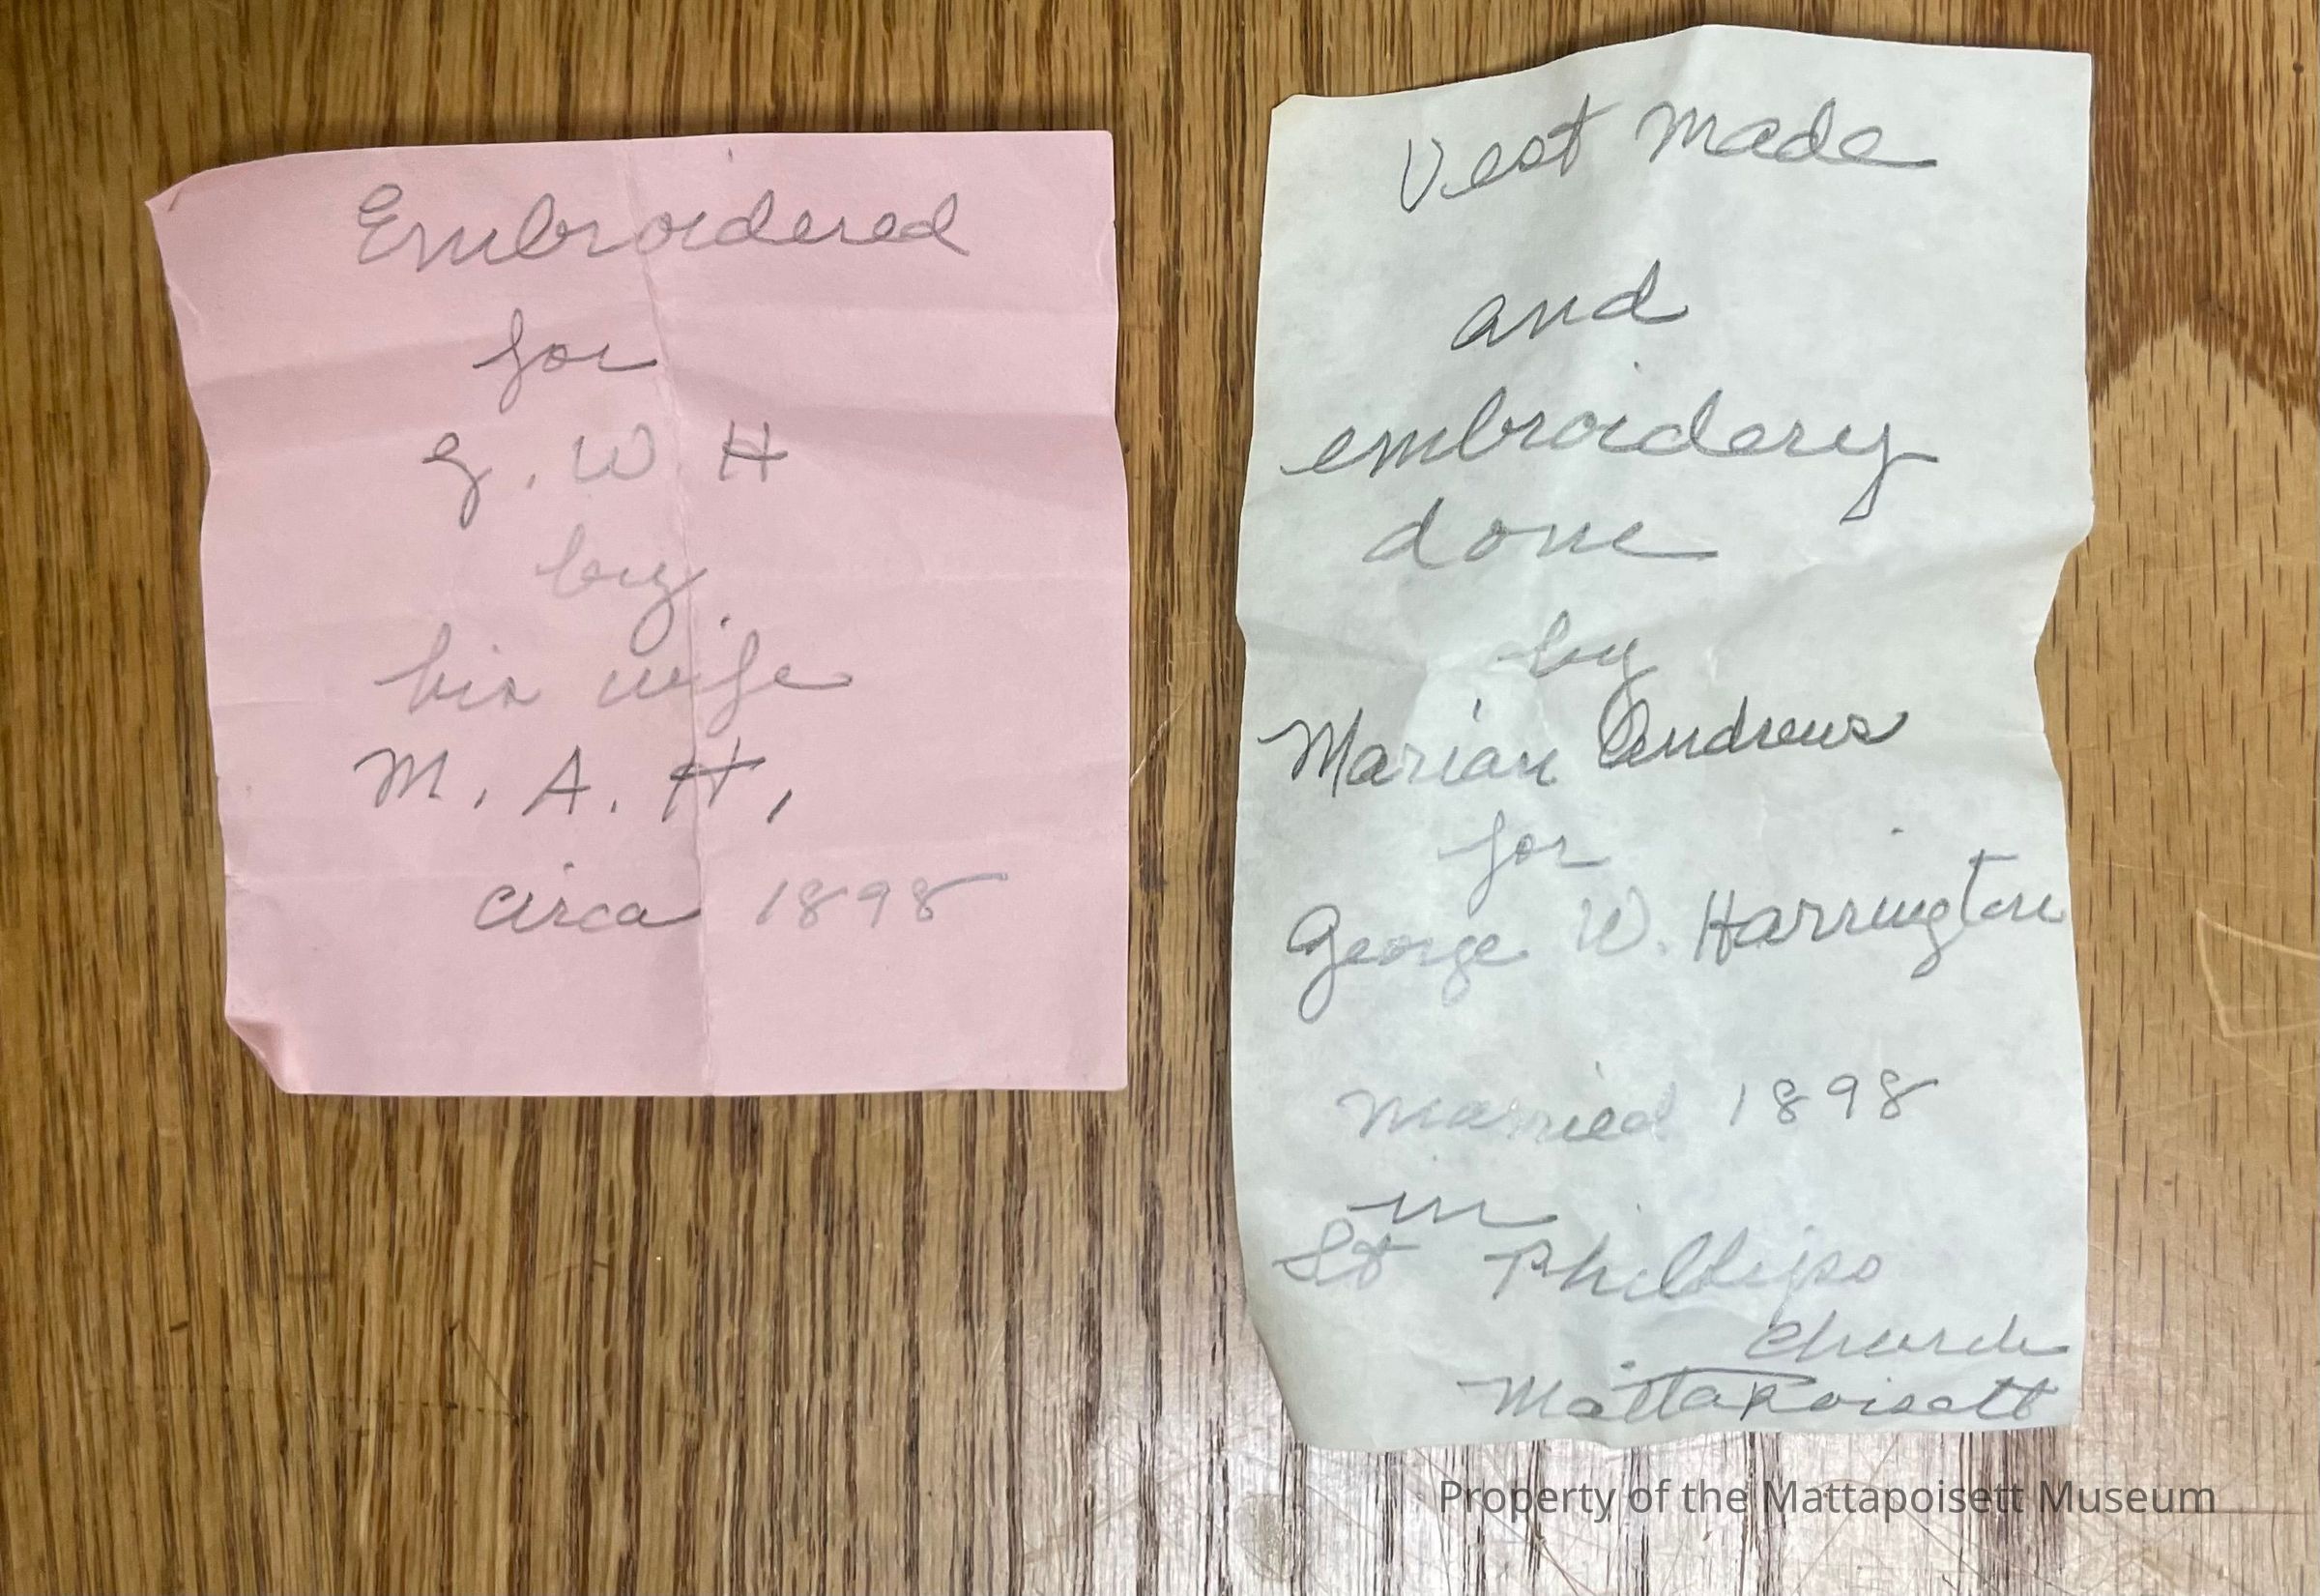 Embroidered
for
G. W. H
by
his wife
M. A. H.
circa 1898
Vest made
and
embroidery
done
by
Marian Andrews
for
George W. Harrington
Married 1898
in
St Phillips
church
Mattapoisett
Property of the Mattapoisett Museum